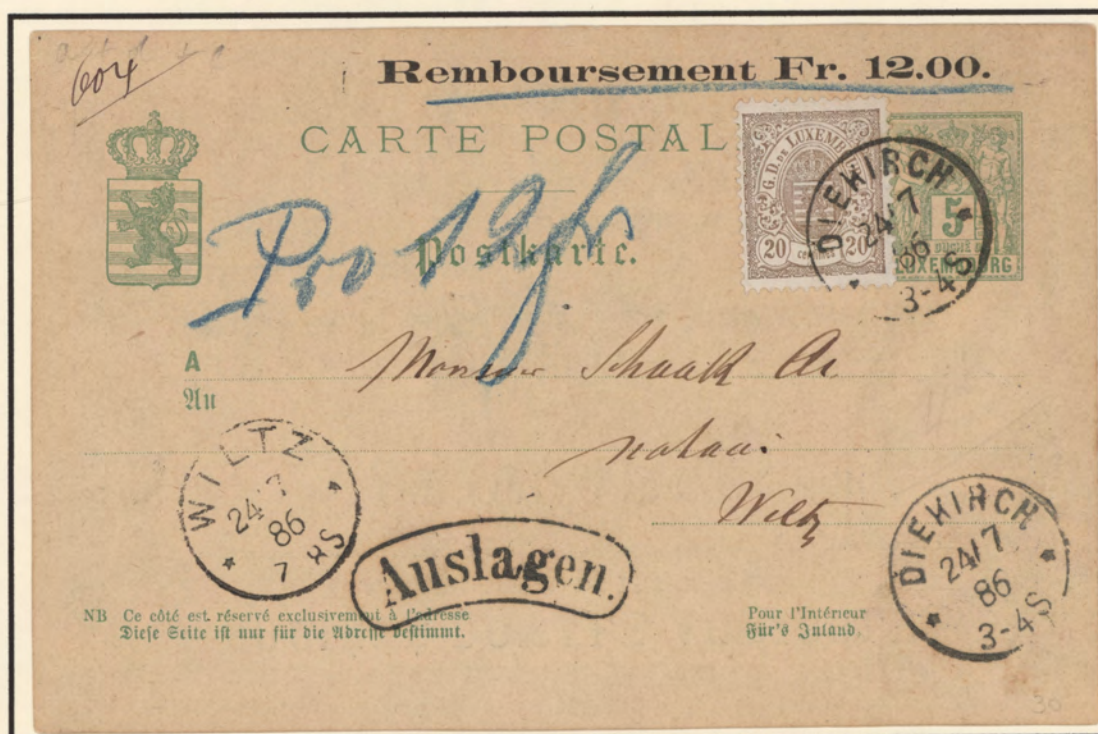 604
Remboursement Fr. 12.00.
CARTE POSTAL
G. D. DE LUXEMB
20 CENTIMES 20
DIEKIRCH
24/7
86
3-4S
5
LUXEMBOURG
Pro 12 fr
Postkarte.
A Monsieur Schaack
An
notaire
Wiltz
WILTZ
24/7
86
7 8S
Auslagen.
DIEKIRCH
24/7
86
3-4S
NB Ce côté est réservé exclusivement à l'adresse
Diese Seite ist nur für die Adresse bestimmt.
Pour l'Intérieur
Für's Inland
30